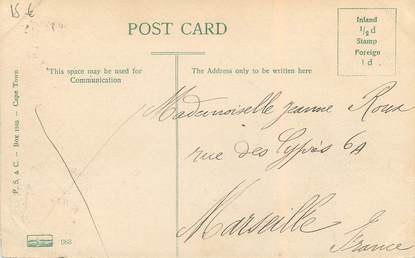 15 €
POST CARD
Inland
½d
Stamp
Foreign
1d
*This space may be used for
Communication
The Address only to be written here
Mademoiselle Jeanne Roux
rue des Cyprès 6A
Marseille
France
P. S. & C. - Box - Cape Town